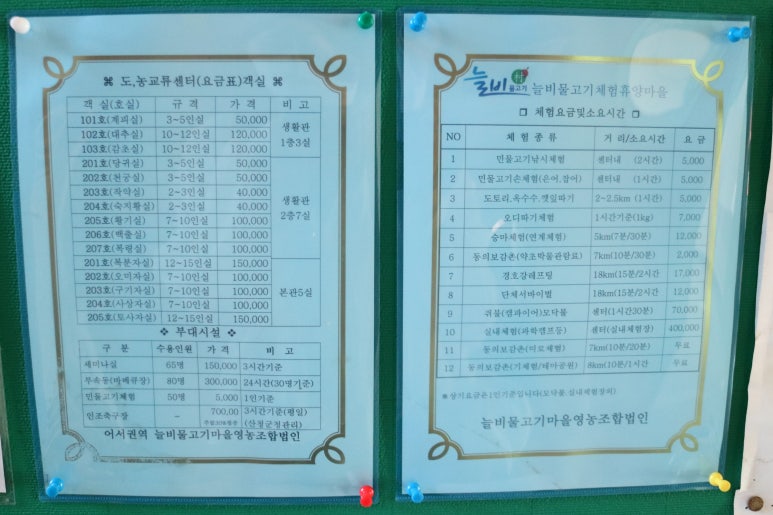 ⌘ 도,농교류센터(요금표)객실 ⌘
객 실(호실) 규 격 가 격 비 고
101호(계피실) 3~5인실 50,000
102호(대추실) 10~12인실 120,000
103호(감초실) 10~12인실 120,000
생활관
1층3실
201호(당귀실) 3~5인실 50,000
202호(천궁실) 3~5인실 50,000
203호(작약실) 2~3인실 40,000
204호(숙지황실) 2~3인실 40,000
205호(황기실) 7~10인실 100,000
206호(백출실) 7~10인실 100,000
207호(복령실) 7~10인실 100,000
생활관
2층7실
201호(복분자실) 12~15인실 150,000
202호(오미자실) 7~10인실 100,000
203호(구기자실) 7~10인실 100,000
204호(사상자실) 7~10인실 100,000
205호(토사자실) 12~15인실 150,000
본관5실
❖ 부대시설 ❖
구 분 수용인원 가 격 비 고
세미나실 65명 150,000 3시간기준
부속동(바베큐장) 80명 300,000 24시간(30명기준)
민물고기체험 50명 5,000 1인기준
인조축구장 - 700,00 3시간기준(평일)
(산청군청관리)
어서권역 늘비물고기마을영농조합법인
늘비 물고기 늘비물고기체험휴양마을
□ 체험요금및소요시간 □
NO 체 험 종 류 거 리/소요시간 요 금
1 민물고기낚시체험 센터내 (2시간) 5,000
2 민물고기손체험(은어,잡어) 센터내 (1시간) 5,000
3 도토리,옥수수,깻잎따기 2~2.5km (1시간) 5,000
4 오디따기체험 1시간기준(1kg) 7,000
5 승마체험(연계체험) 5km(7분/30분) 12,000
6 동의보감촌(약초박물관람료) 7km(10분/30분) 2,000
7 경호강래프팅 18km(15분/2시간 17,000
8 단체서바이벌 18km(15분/2시간 12,000
9 쥐불(캠파이어)모닥불 센터(1시간30분) 70,000
10 실내체험(과학캠프등) 센터(실내체험장) 400,000
11 동의보감촌(미로체험) 7km(10분/20분) 무료
12 동의보감촌(기체험/테마공원) 8km(10분/1시간 무료
※상기요금은1인기준입니다(모닥불,실내체험장외)
늘비물고기마을영농조합법인